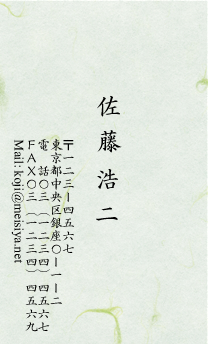 佐藤浩二
〒一二三ー四五六七
東京都中央区銀座〇ー一ー二
電話〇三（一二三四）四五六七
ＦＡＸ〇三（一二三四）四五六九
Mail: koji@meisiya.net